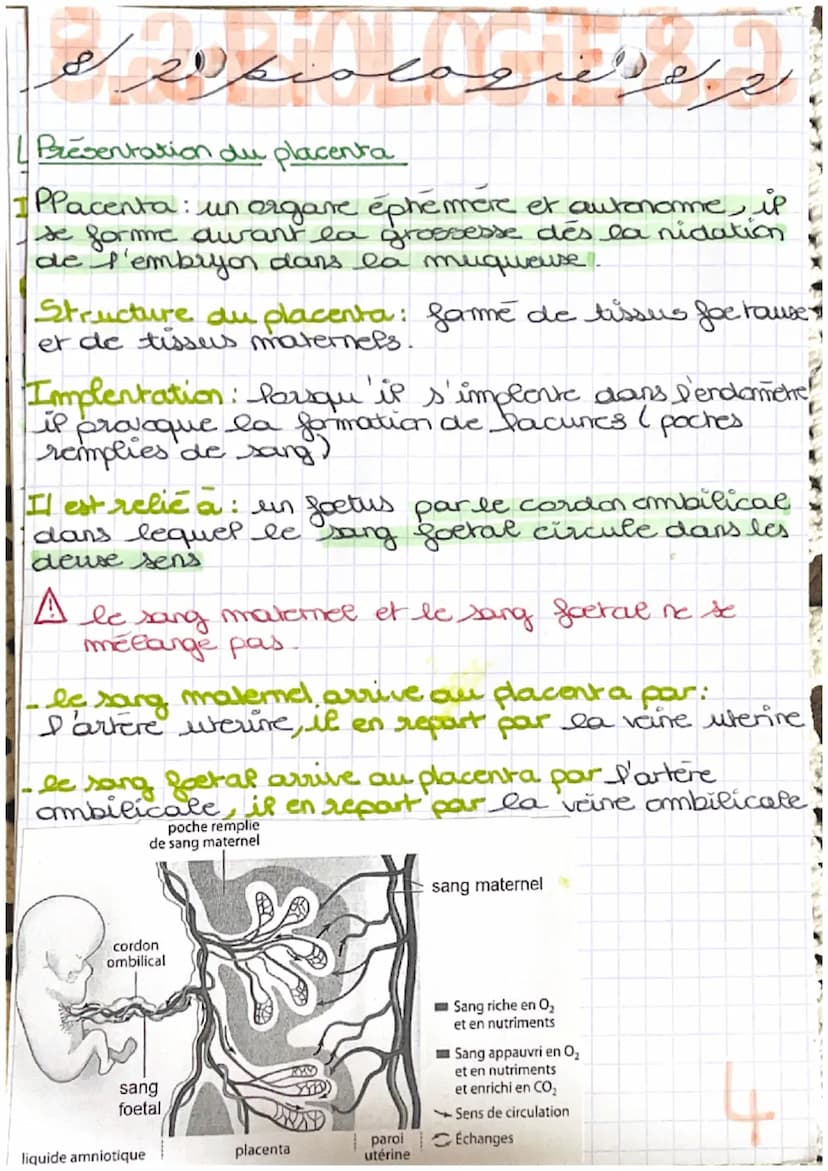 8.2 BIOLOGIE 8.2
8/2 biologie 8/2
Présentation du placenta
PPacenta : un organe éphémère et autonome, il
se forme durant la grossesse dès la nidation
de l'embryon dans la muqueuse.
Structure du placenta : formé de tissus foetause
et de tissus maternels.
Implentation : lorsqu'il s'implente dans l'endomètre
il provoque la formation de lacunes ( poches
remplies de sang )
Il est relié à : un foetus par le cordon ombilical
dans lequel le sang foetal circule dans les
deuse sens
⚠ le sang maternel et le sang foetal ne se
mélange pas.
- le sang maternel arrive au placenta par :
l'artère uterine, il en repart par la veine uterine
- le sang foetal arrive au placenta par l'artère
ombilicale, il en repart par la veine ombilicale
poche remplie
de sang maternel
sang maternel
cordon
ombilical
Sang riche en O₂
et en nutriments
Sang appauvri en O₂
et en nutriments
et enrichi en CO₂
sang
foetal
Sens de circulation
Échanges
liquide amniotique
placenta
paroi
utérine
4